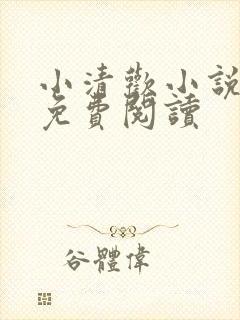 小清歡小說
免費閱讀
谷體偉